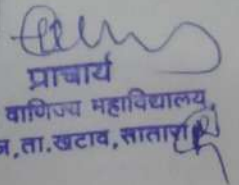 प्राचार्य
वाणिज्य महाविद्यालय,
ता.खटाव, सातारा